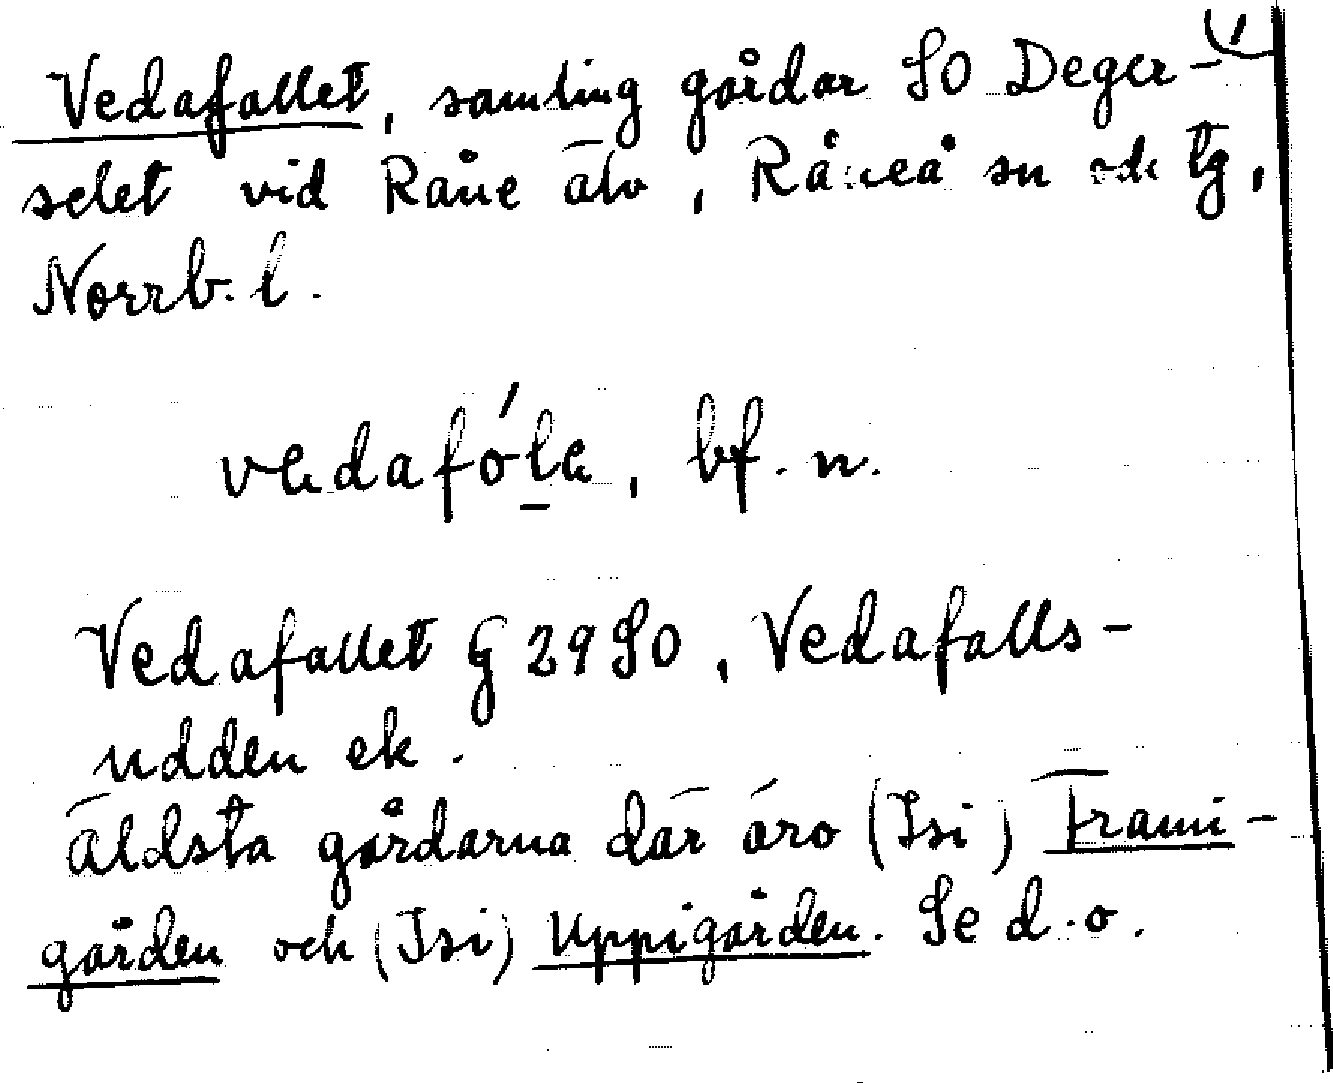 Vedafallet, samling gårdar SO Deger-
selet vid Råne älv, Råneå sn och tg,
Norrb. l.
bf. n.
Vedafallet G 29 SO, Vedafalls-
udden ek.
Äldsta gårdarna där äro (Isi) Frami-
gården och (Isi) Uppigården. Se d. o.